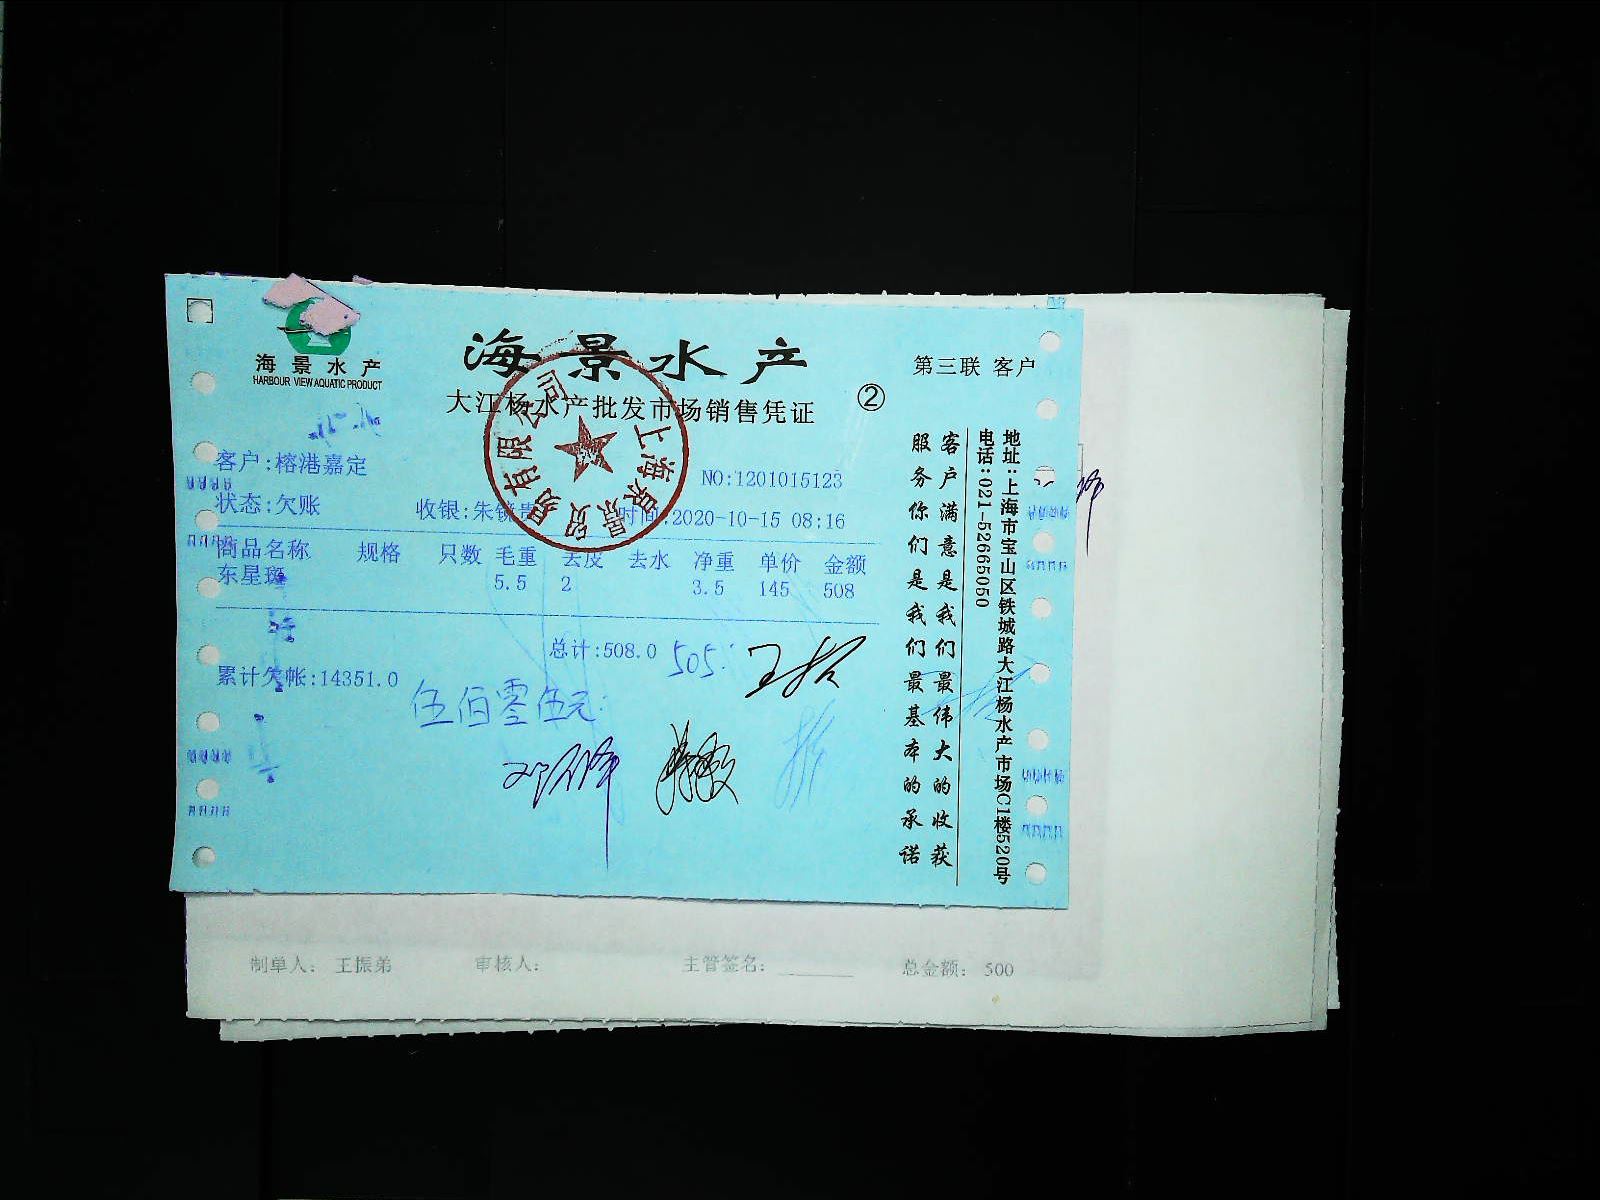 海景水产
HARBOUR VIEW AQUATIC PRODUCT
海景水产
大江杨水产批发市场销售凭证
②
第三联 客户
客户:榕港嘉定
NO:1201015123
状态:欠账 收银:朱锐 时间:2020-10-15 08:16
商品名称 规格 只数 毛重 去皮 去水 净重 单价 金额
东星斑 5.5 2 3.5 145 508
总计:508.0 505
累计欠帐:14351.0
伍佰零伍元
上海景景贸易有限公司
客户满意是我们最伟大的收获
服务你们是我们最基本的承诺
地址:上海市宝山区铁城路大江杨水产市场C1楼520号
电话:021-52665050
制单人: 王振弟 审核人: 主管签名: 总金额: 500